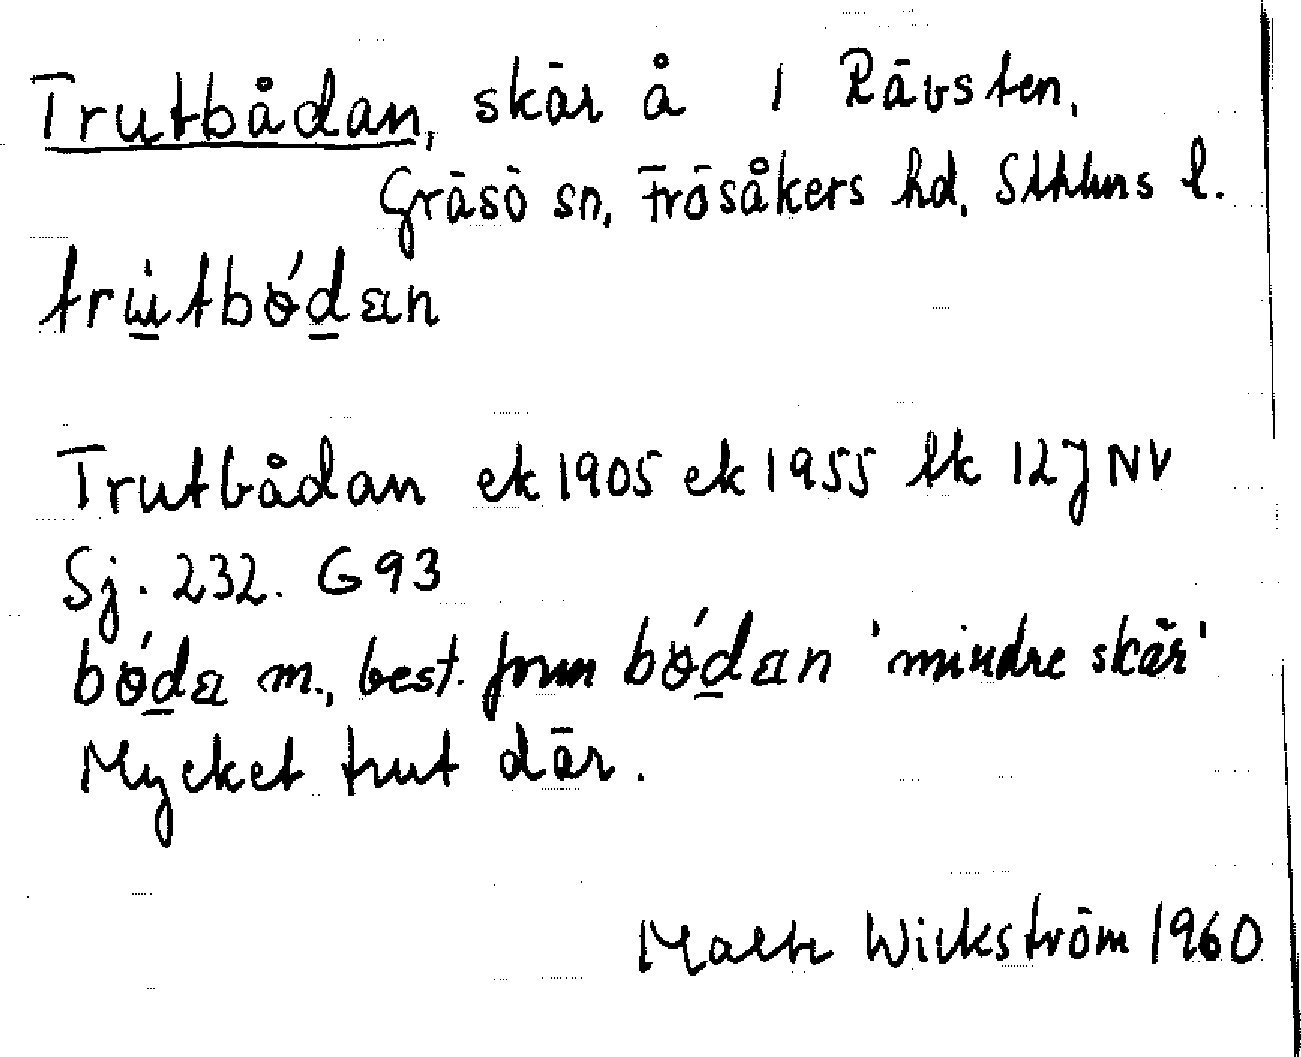 Trutbådan, skär å 1 Rävsten,
Gräsö sn, Frösåkers hd, Sthlms l.
trut̀bǿdan
Trutbådan ek 1905 ek 1955 tk 12J NV
Sj. 232. G 93
bǿda m., best. form bǿdan 'mindre skär'
Mycket trut där.
Wickström 1960